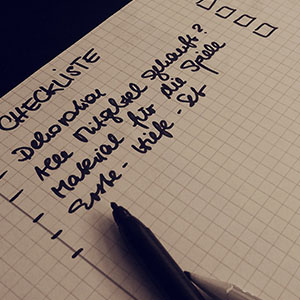 CHECKLISTE
- Dekoration
- Alle Mitgebsel gekauft?
- Material für die Spiele
- Erste-Hilfe-Set
-
-